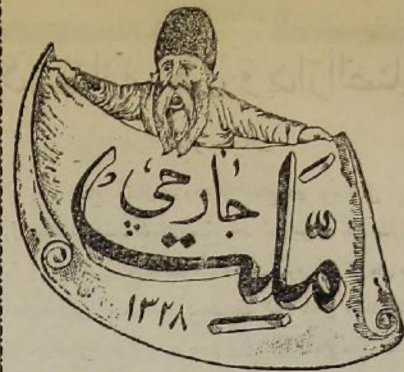 جارچی
ملّت
۱۳۲۸